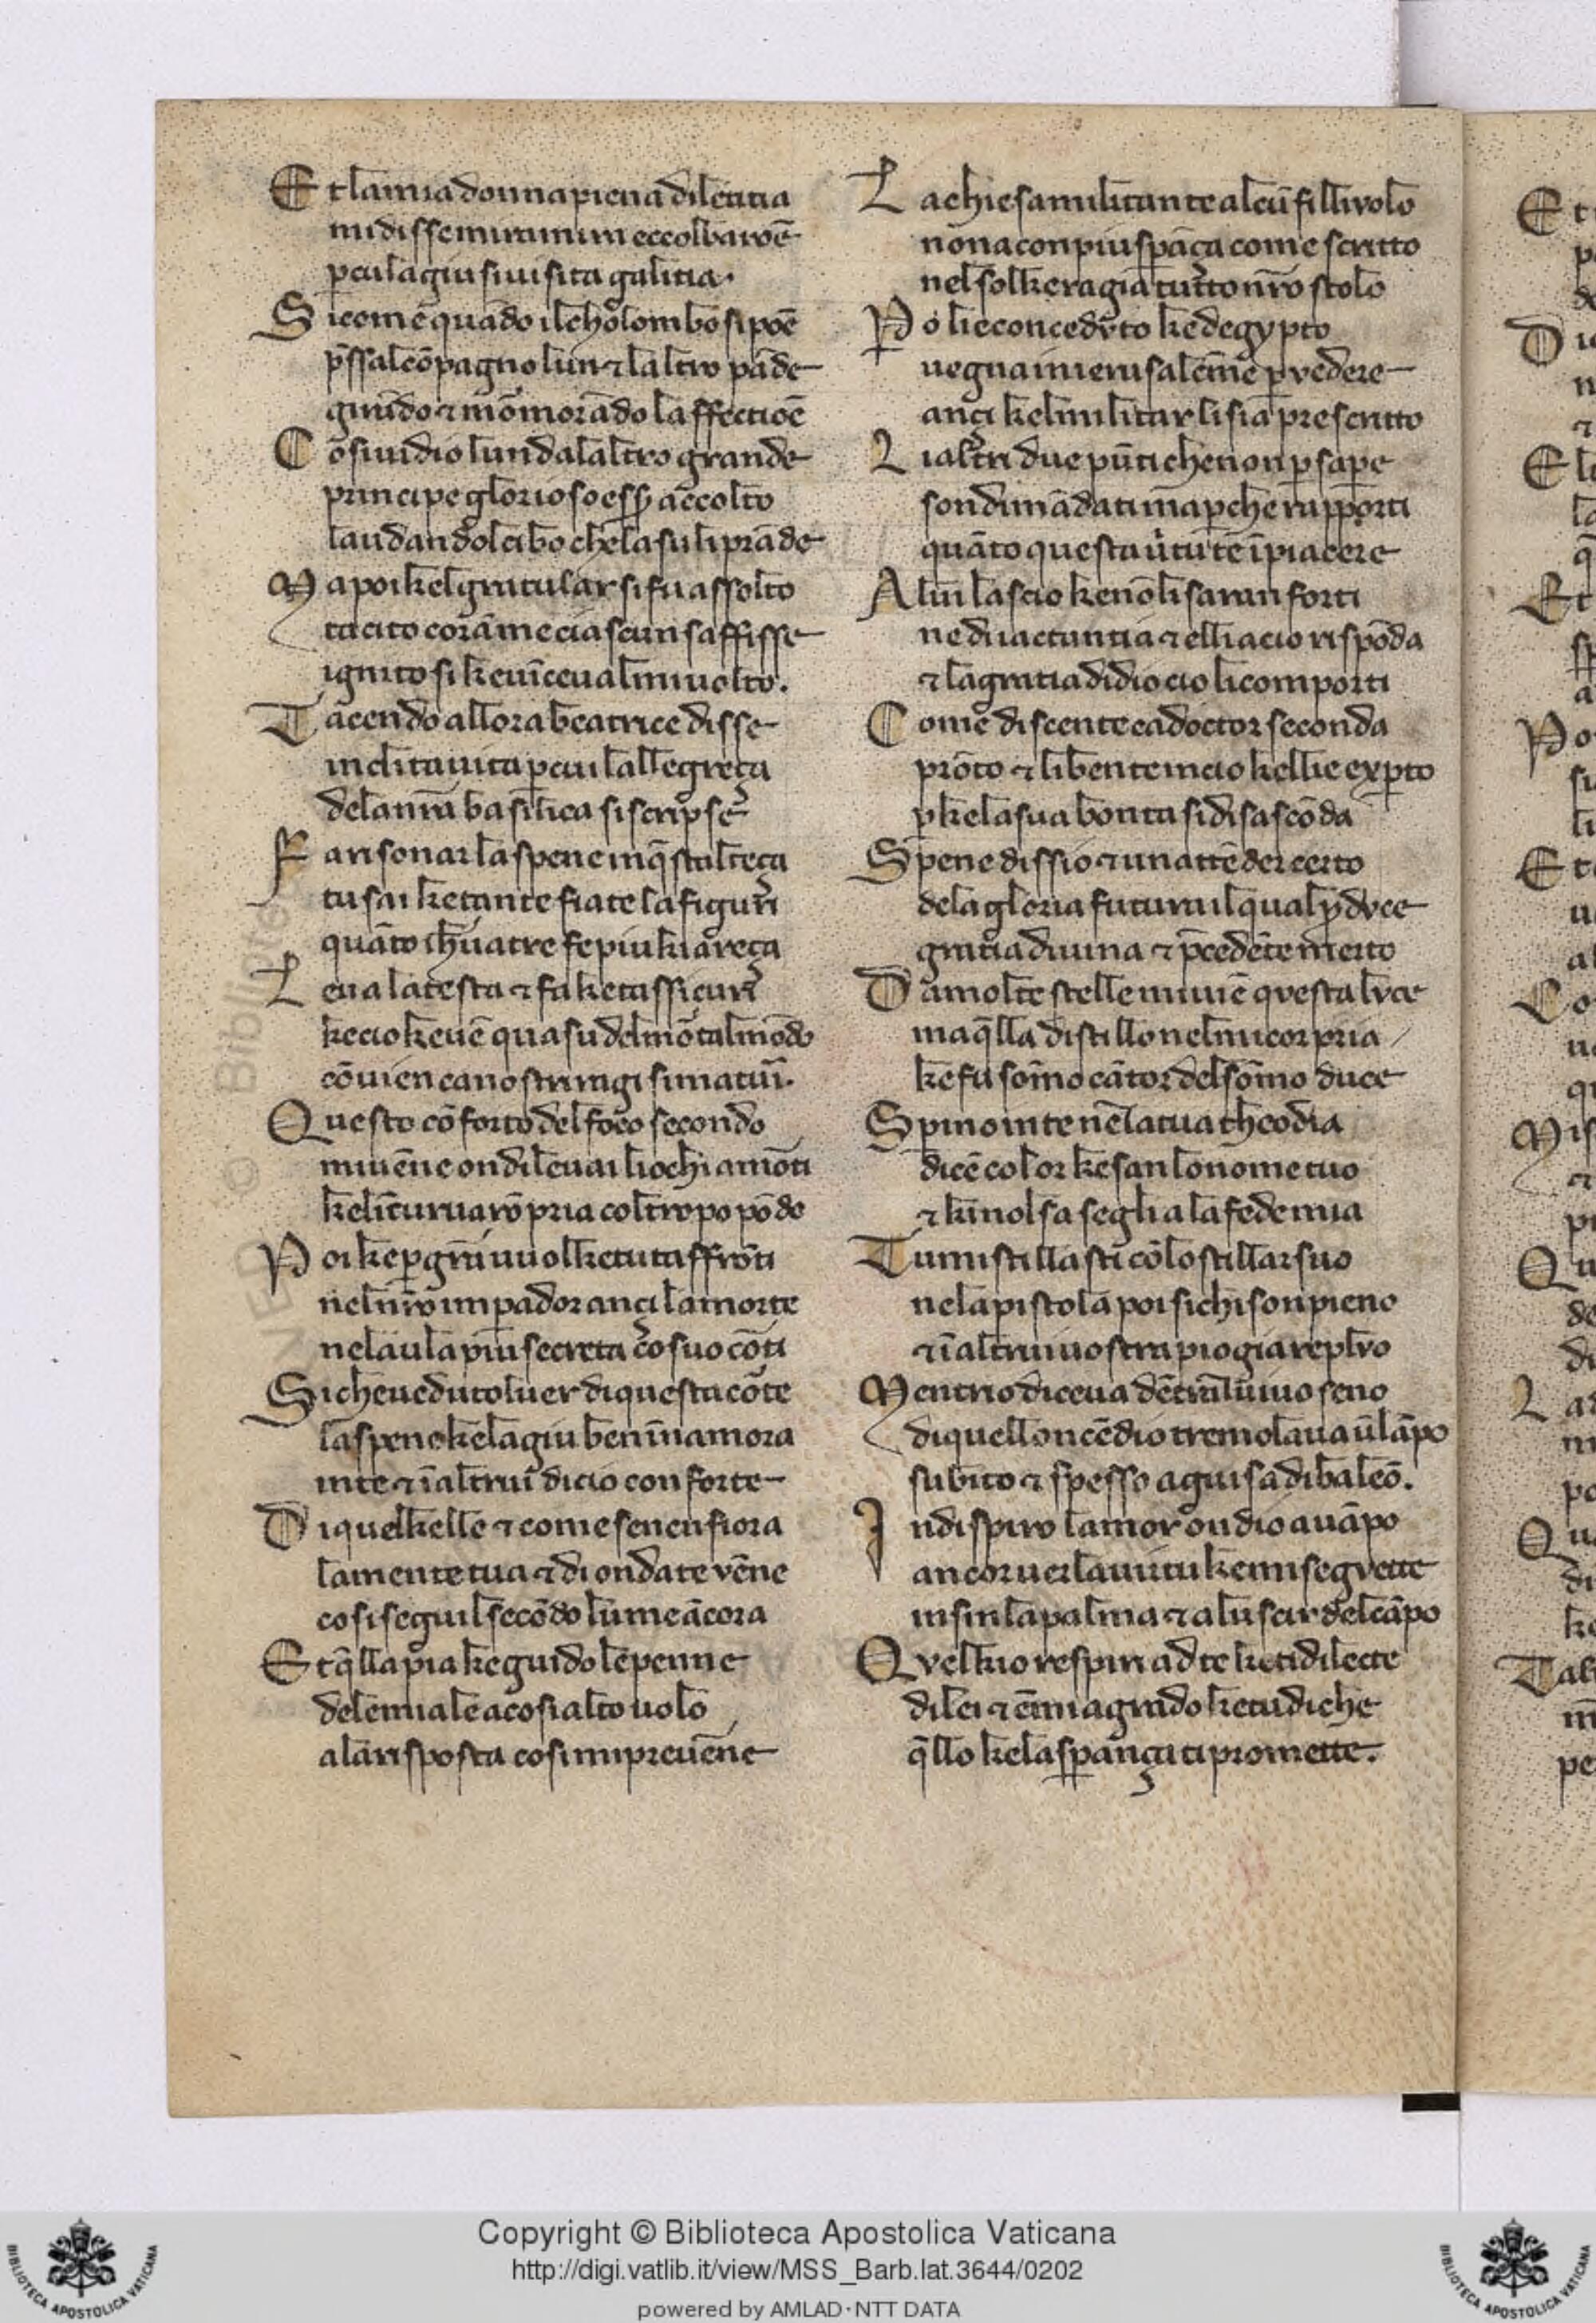 Et la mia donna piena di letitia
mi disse mira mira ecco lbarōe
p cui lagiu si uisita galitia.
Si come quādo il cholombo si pōe
p̄ssal cōpagno lun ⁊ laltro pāde
girādo ⁊ mōmorādo laffectiōe
Cosi uidio lun dalaltro grande
principe glorioso ess̄ accolto
laudando lcibo che lasu li prāde
Ma poi kel gratular si fu assolto
tacito corā me ciascun saffisse
ignito si ke uīceua lmi uolto.
Tacendo allora beatrice disse
inclita uita p cui lallegreça
dela nr̄a basilica si scripse
Fa risonar la spene in q̄stalteça
tu sai ke tante fiate la figuri
quāto ih̄u a tre fe piu kiareça
Leua la testa ⁊ fa ke tassicuri
ke cio ke uē qua su del mōtal mōdo
cōuien ca nostri ragi si maturi.
Questo cōforto del foco secondo
mi uēne ondi leuai liochi a mōti
ke līcuruarō pria col tropo pōdo
Poi ke p gr̄a uuol ke tu taffrōti
nel nr̄o impador ançi la morte
nelaula piu secreta co suo cōti
Si che ueduto luer di questa cōte
la spene kela giu ben īnamora
in te ⁊ ī altrui di cio conforte
Di quel kelle ⁊ come sene nfiora
la mente tua ⁊ di onda te vēne
cosi segui lsecōdo lume ācora
Et q̄lla pia ke guido le penne
dele mi ale a cosi alto uolo
ala risposta cosi mi preuēne
La chiesa militante alcū fillivolo
non a con piu spāça come scritto
nel sol ke ragia tutto nr̄o stolo
Po lie conceduto ke degypto
uegna in ierusalēme p vedere
ançi kel militar li sia prescritto
Li altri due pūti che non p sape
son dimādati ma pche rapporti
quāto questa u̇tu te ī piacere
A lui lascio ke nō li saran forti
ne di iactantia ⁊ elli a cio rispōda
⁊ la gratia didio cio li comporti
Come discente ca doctor seconda
prōto ⁊ libente in cio kellie exp̱to
p ke la sua bonta si disascōda
Spene dissio ⁊ un attēder certo
dela gloria futura il qual p̱dvce
gratia diuina ⁊ p̄cedēte merto
Da molte stelle mi uiē qvesta lvce
ma q̄lla distillo nel mi cor pria
ke fu sōmo cātor del sōmo duce
Sp̱ino in te nela tua theodia
dicē color ke san lo nome tuo
⁊ ki nol sa segli a la fede mia
Tu mi stillasti cōlo stillar suo
nela pistola poi si chi son pieno
⁊ ī altrui uostra piogia replvo
Mentrio diceua dētral uiuo seno
di quello ncēdio tremolaua ū lāpo
subito ⁊ spesso a guisa di baleō.
Indi spiro lamor ondio auāpo
ancor uer la uirtu ke mi segvette
in sin la palma ⁊ a luscir del cāpo
Qvel kuo respiri ad te ke ti dilecte
di lei ⁊ ēmi a grado ke tu diche
q̄llo ke la sp̱ança ti promette.
Copyright © Biblioteca Apostolica Vaticana
http://digi.vatlib.it/view/MSS_Barb.lat.3644/0202
powered by AMLAD·NTT DATA